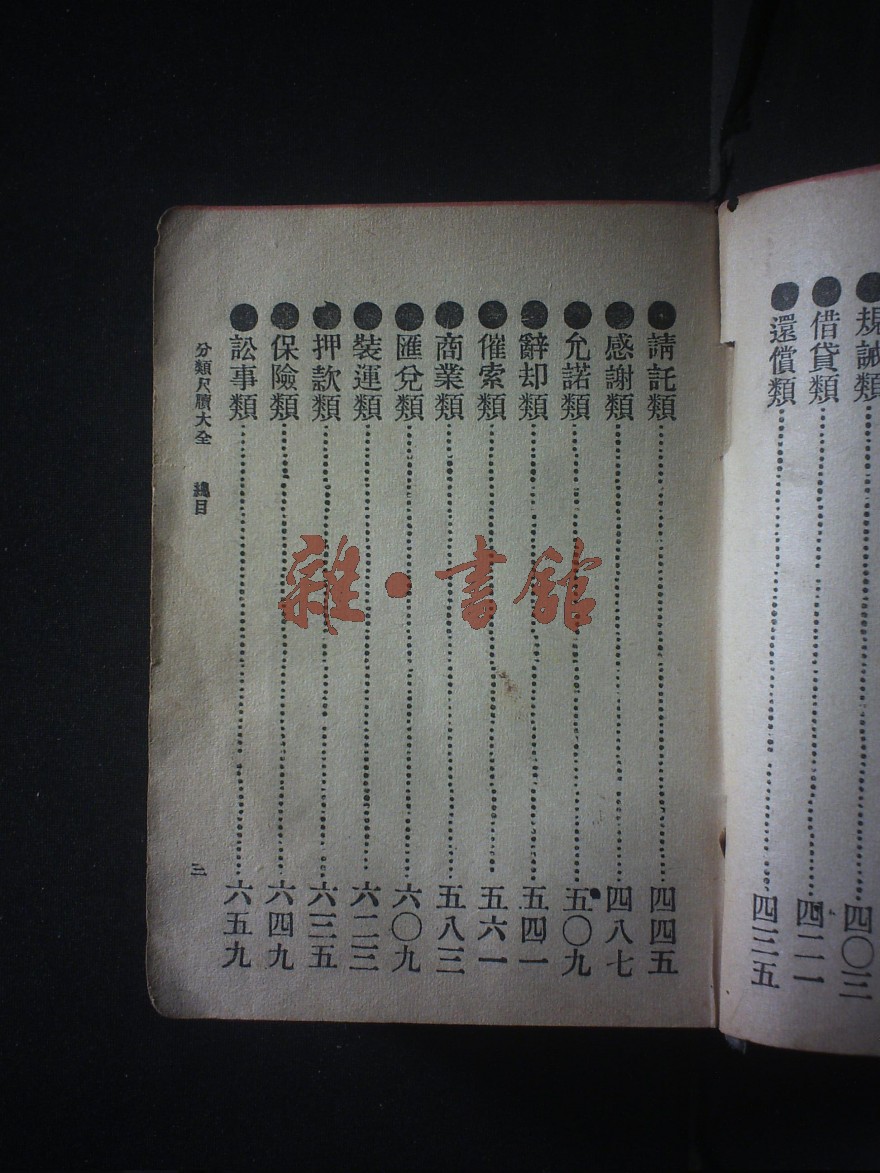 規誡類 四〇三
借貸類 四二一
還償類 四三五
請託類 四四五
感謝類 四八七
允諾類 五〇九
辭却類 五四一
催索類 五六一
商業類 五八三
匯兌類 六〇九
裝運類 六二三
押款類 六三五
保險類 六四九
訟事類 六五九
分類尺牘大全 總目 三
雜·書館